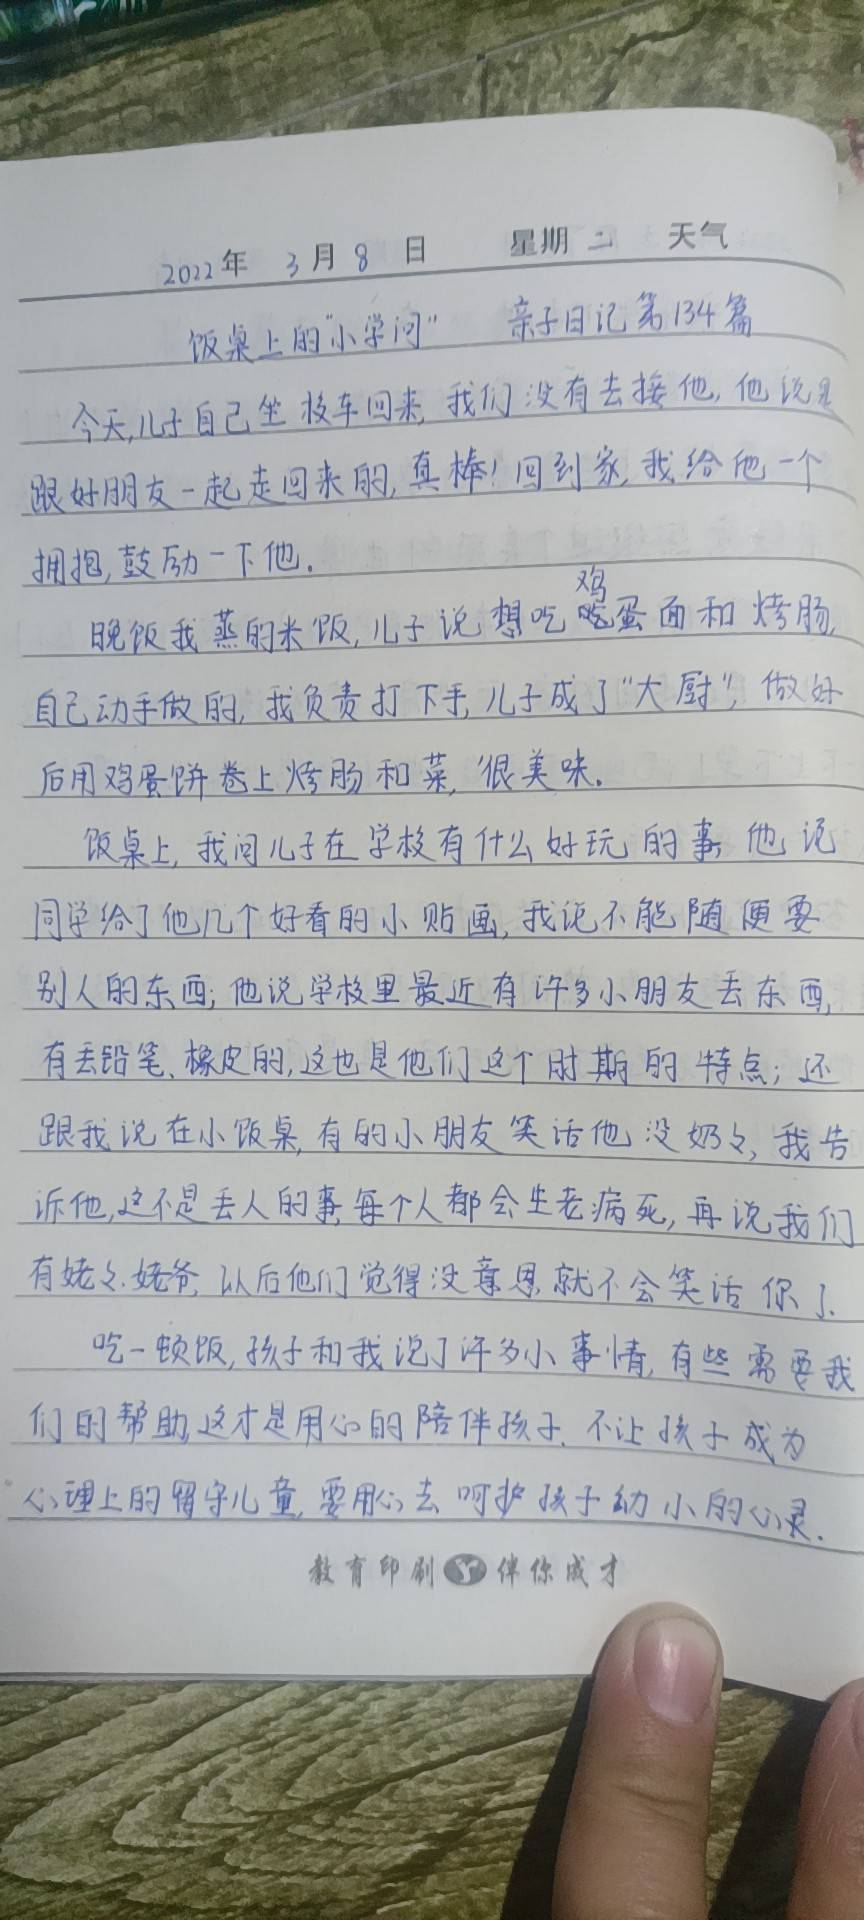 2022年 3月8日 星期二 天气
饭桌上的“小学问” 亲子日记第134篇
今天,儿子自己坐校车回来,我们没有去接他,他说是
跟好朋友一起走回来的,真棒!回到家,我给他一个
拥抱,鼓励一下他.
晚饭我蒸的米饭,儿子说想吃鸡蛋面和烤肠,
自己动手做的,我负责打下手,儿子成了“大厨”,做好
后用鸡蛋饼卷上烤肠和菜,很美味.
饭桌上,我问儿子在学校有什么好玩的事,他说
同学给了他几个好看的小贴画,我说不能随便要
别人的东西;他说学校里最近有许多小朋友丢东西,
有丢铅笔、橡皮的,这也是他们这个时期的特点;还
跟我说在小饭桌,有的小朋友笑话他没奶々,我告
诉他,这不是丢人的事,每个人都会生老病死,再说我们
有姥々.姥爷,以后他们觉得没意思,就不会笑话你了.
吃一顿饭,孩子和我说了许多小事情,有些需要我
们的帮助,这才是用心的陪伴孩子.不让孩子成为
心理上的留守儿童,要用心去呵护孩子幼小的心灵.
教育印刷 伴你成才